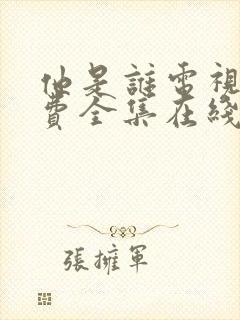 他是誰電視
費全集在綫
張擁軍